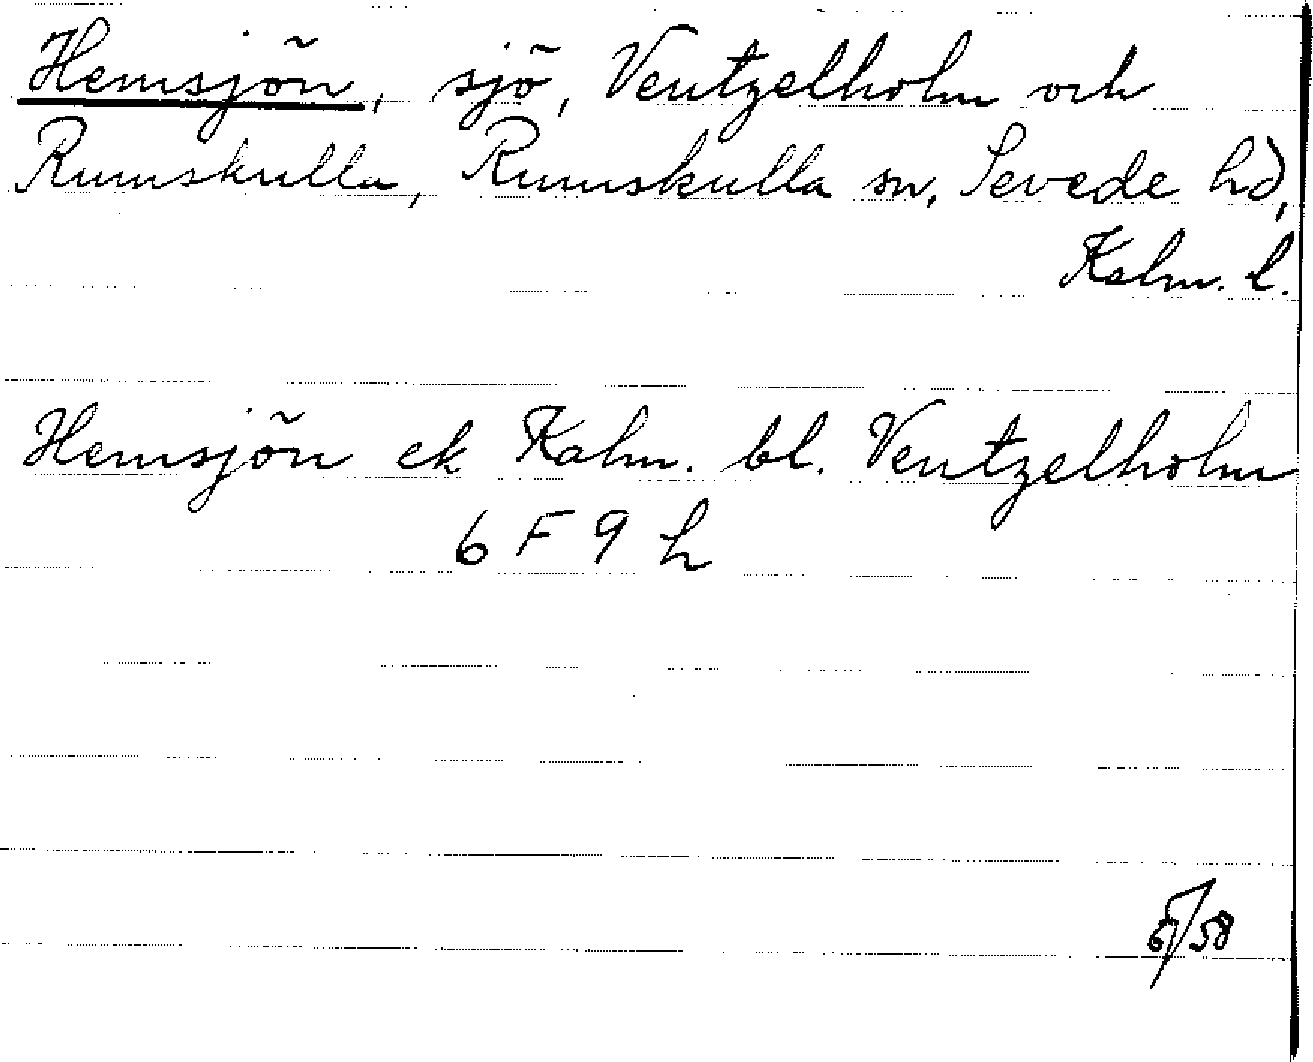 Hemsjön, sjö, Ventzelholm och
Rumskulla, Rumskulla sn, Sevede hd,
Kalm. l.
Hemsjön ek Kalm. bl. Ventzelholm
6 F 9 h
/58